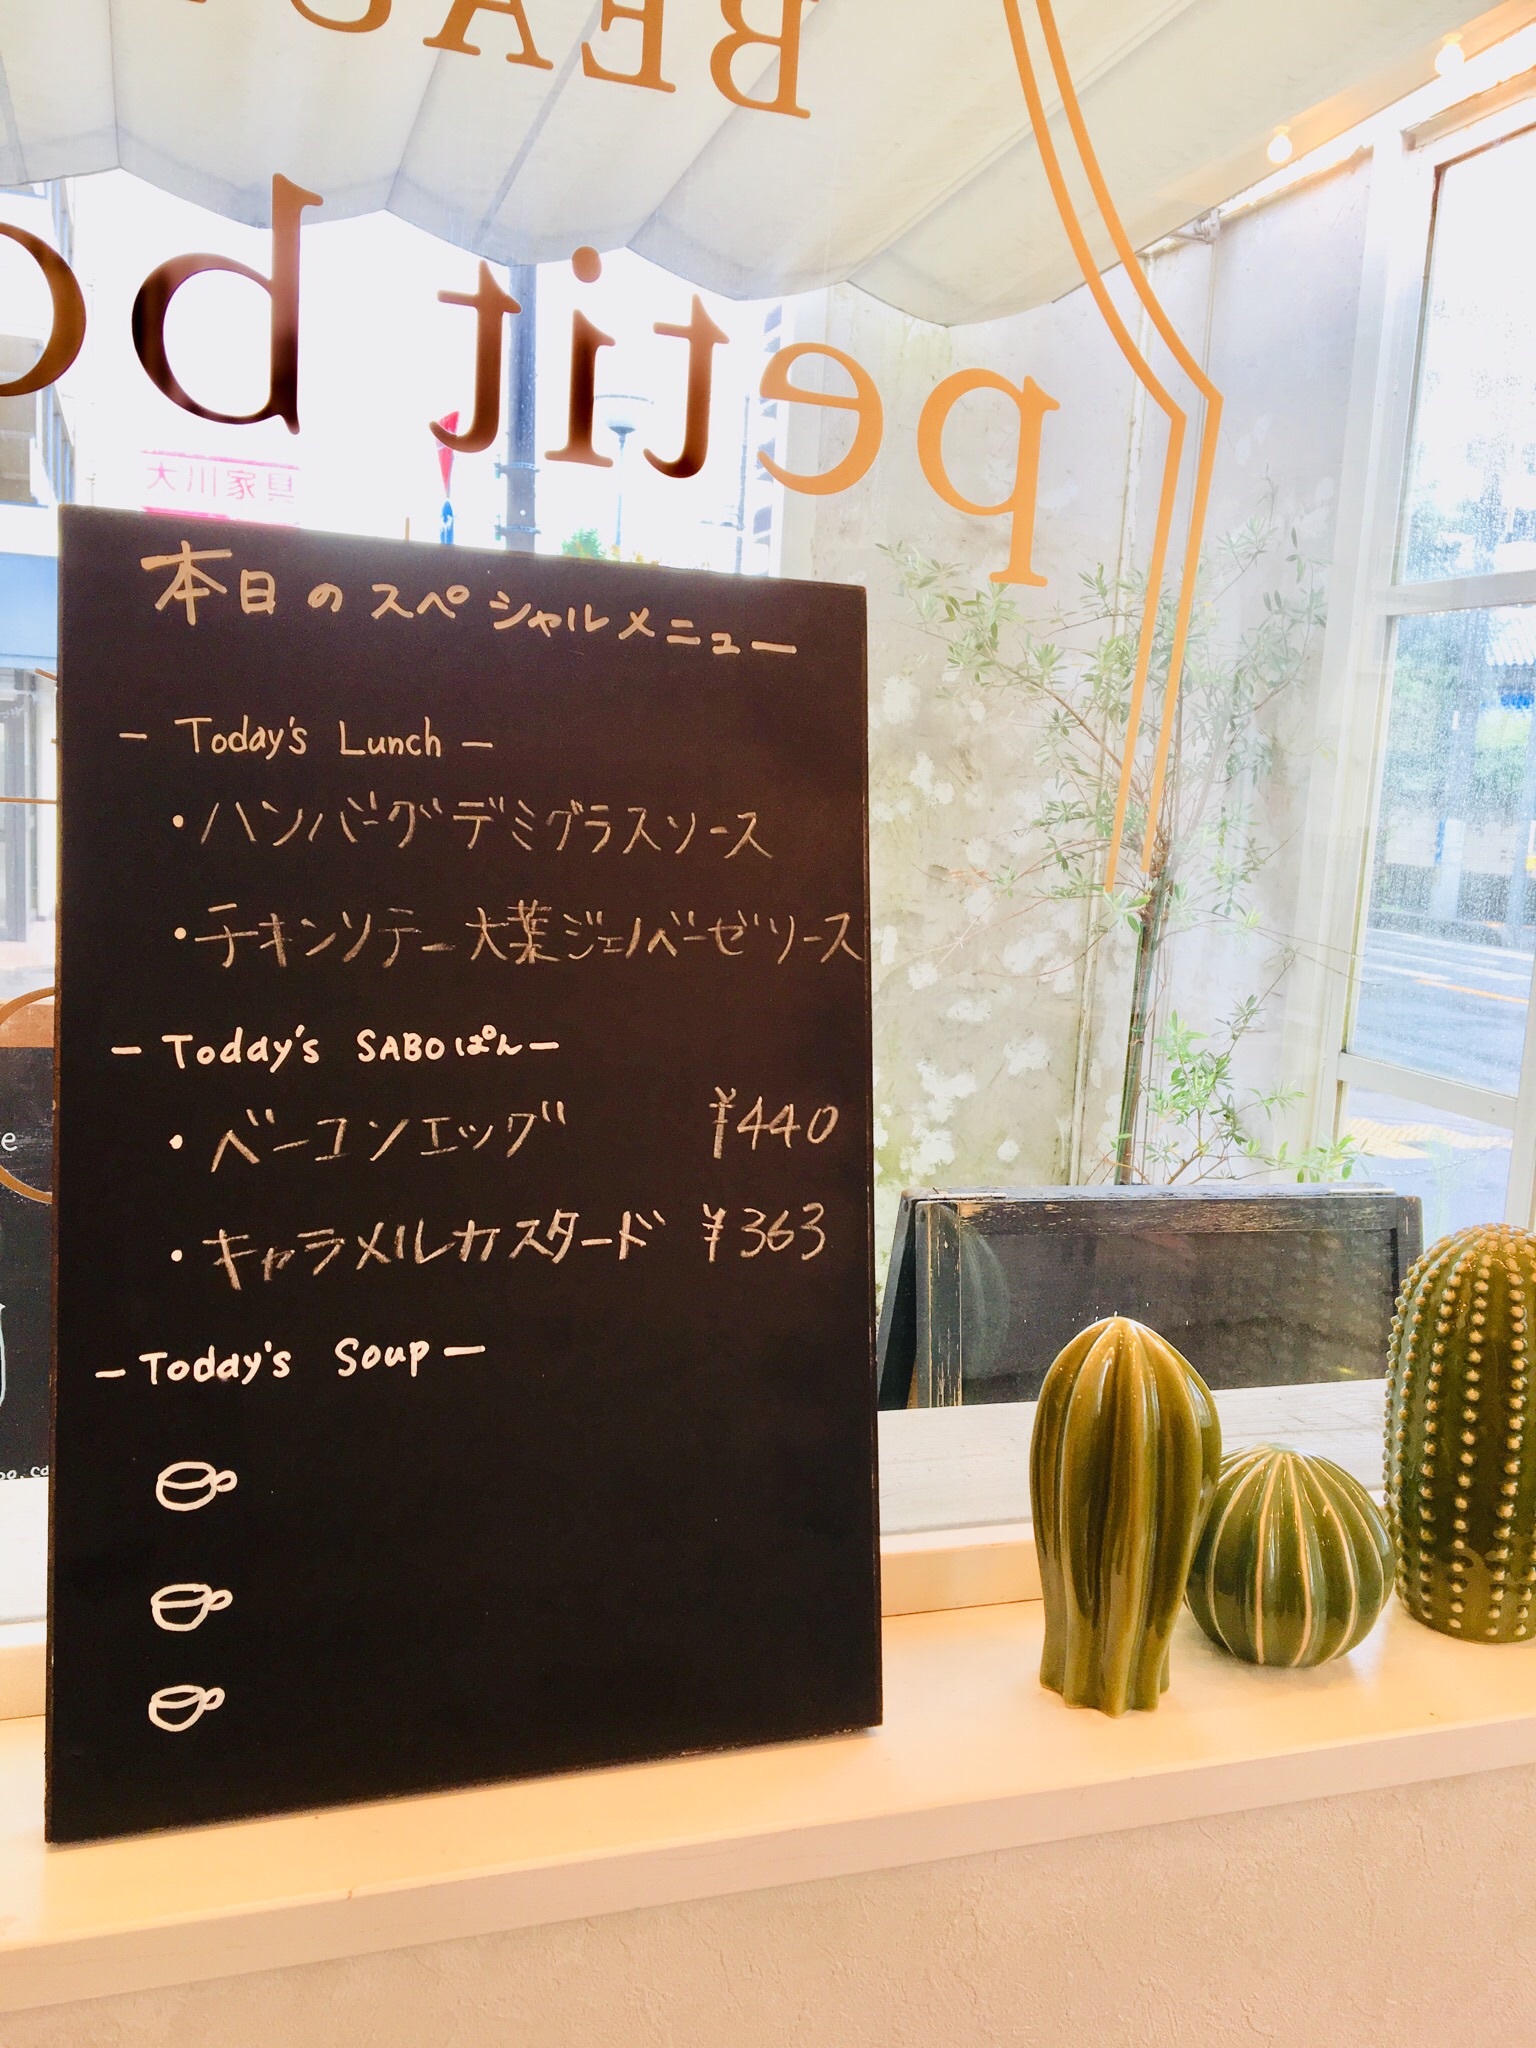 BEA
petit b
大川家具
本日のスペシャルメニュー
- Today's Lunch -
・ハンバーグデミグラスソース
・チキンソテー大葉ジェノベーゼソース
- Today's SABOぱん -
・ベーコンエッグ ¥440
・キャラメルカスタード ¥363
- Today's Soup -